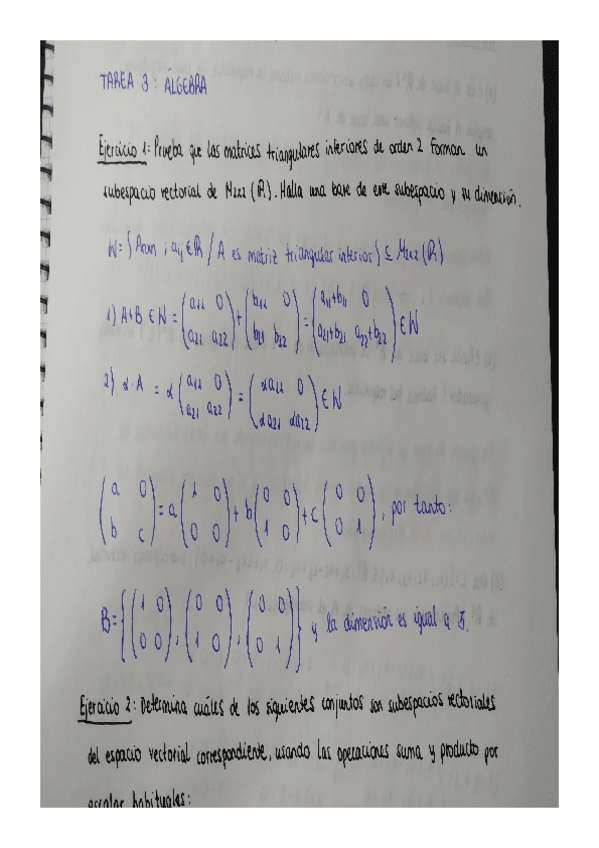 TAREA 3: ÁLGEBRA
Ejercicio 1: Prueba que las matrices triangulares inferiores de orden 2 forman un
subespacio vectorial de M₂ₓ₂(ℝ). Halla una base de este subespacio y su dimensión.
W = { Aₙₓₙ ; aᵢⱼ ∈ ℝ / A es matriz triangular inferior } ⊆ M₂ₓ₂(ℝ)
1) A+B ∈ W = (a₁₁ 0 ; a₂₁ a₂₂) + (b₁₁ 0 ; b₂₁ b₂₂) = (a₁₁+b₁₁ 0 ; a₂₁+b₂₁ a₂₂+b₂₂) ∈ W
2) α·A = α (a₁₁ 0 ; a₂₁ a₂₂) = (αa₁₁ 0 ; αa₂₁ αa₂₂) ∈ W
(a 0 ; b c) = a (1 0 ; 0 0) + b (0 0 ; 1 0) + c (0 0 ; 0 1), por tanto:
B = { (1 0 ; 0 0), (0 0 ; 1 0), (0 0 ; 0 1) } y la dimensión es igual a 3.
Ejercicio 2: Determina cuáles de los siguientes conjuntos son subespacios vectoriales
del espacio vectorial correspondiente, usando las operaciones suma y producto por
escalar habituales: